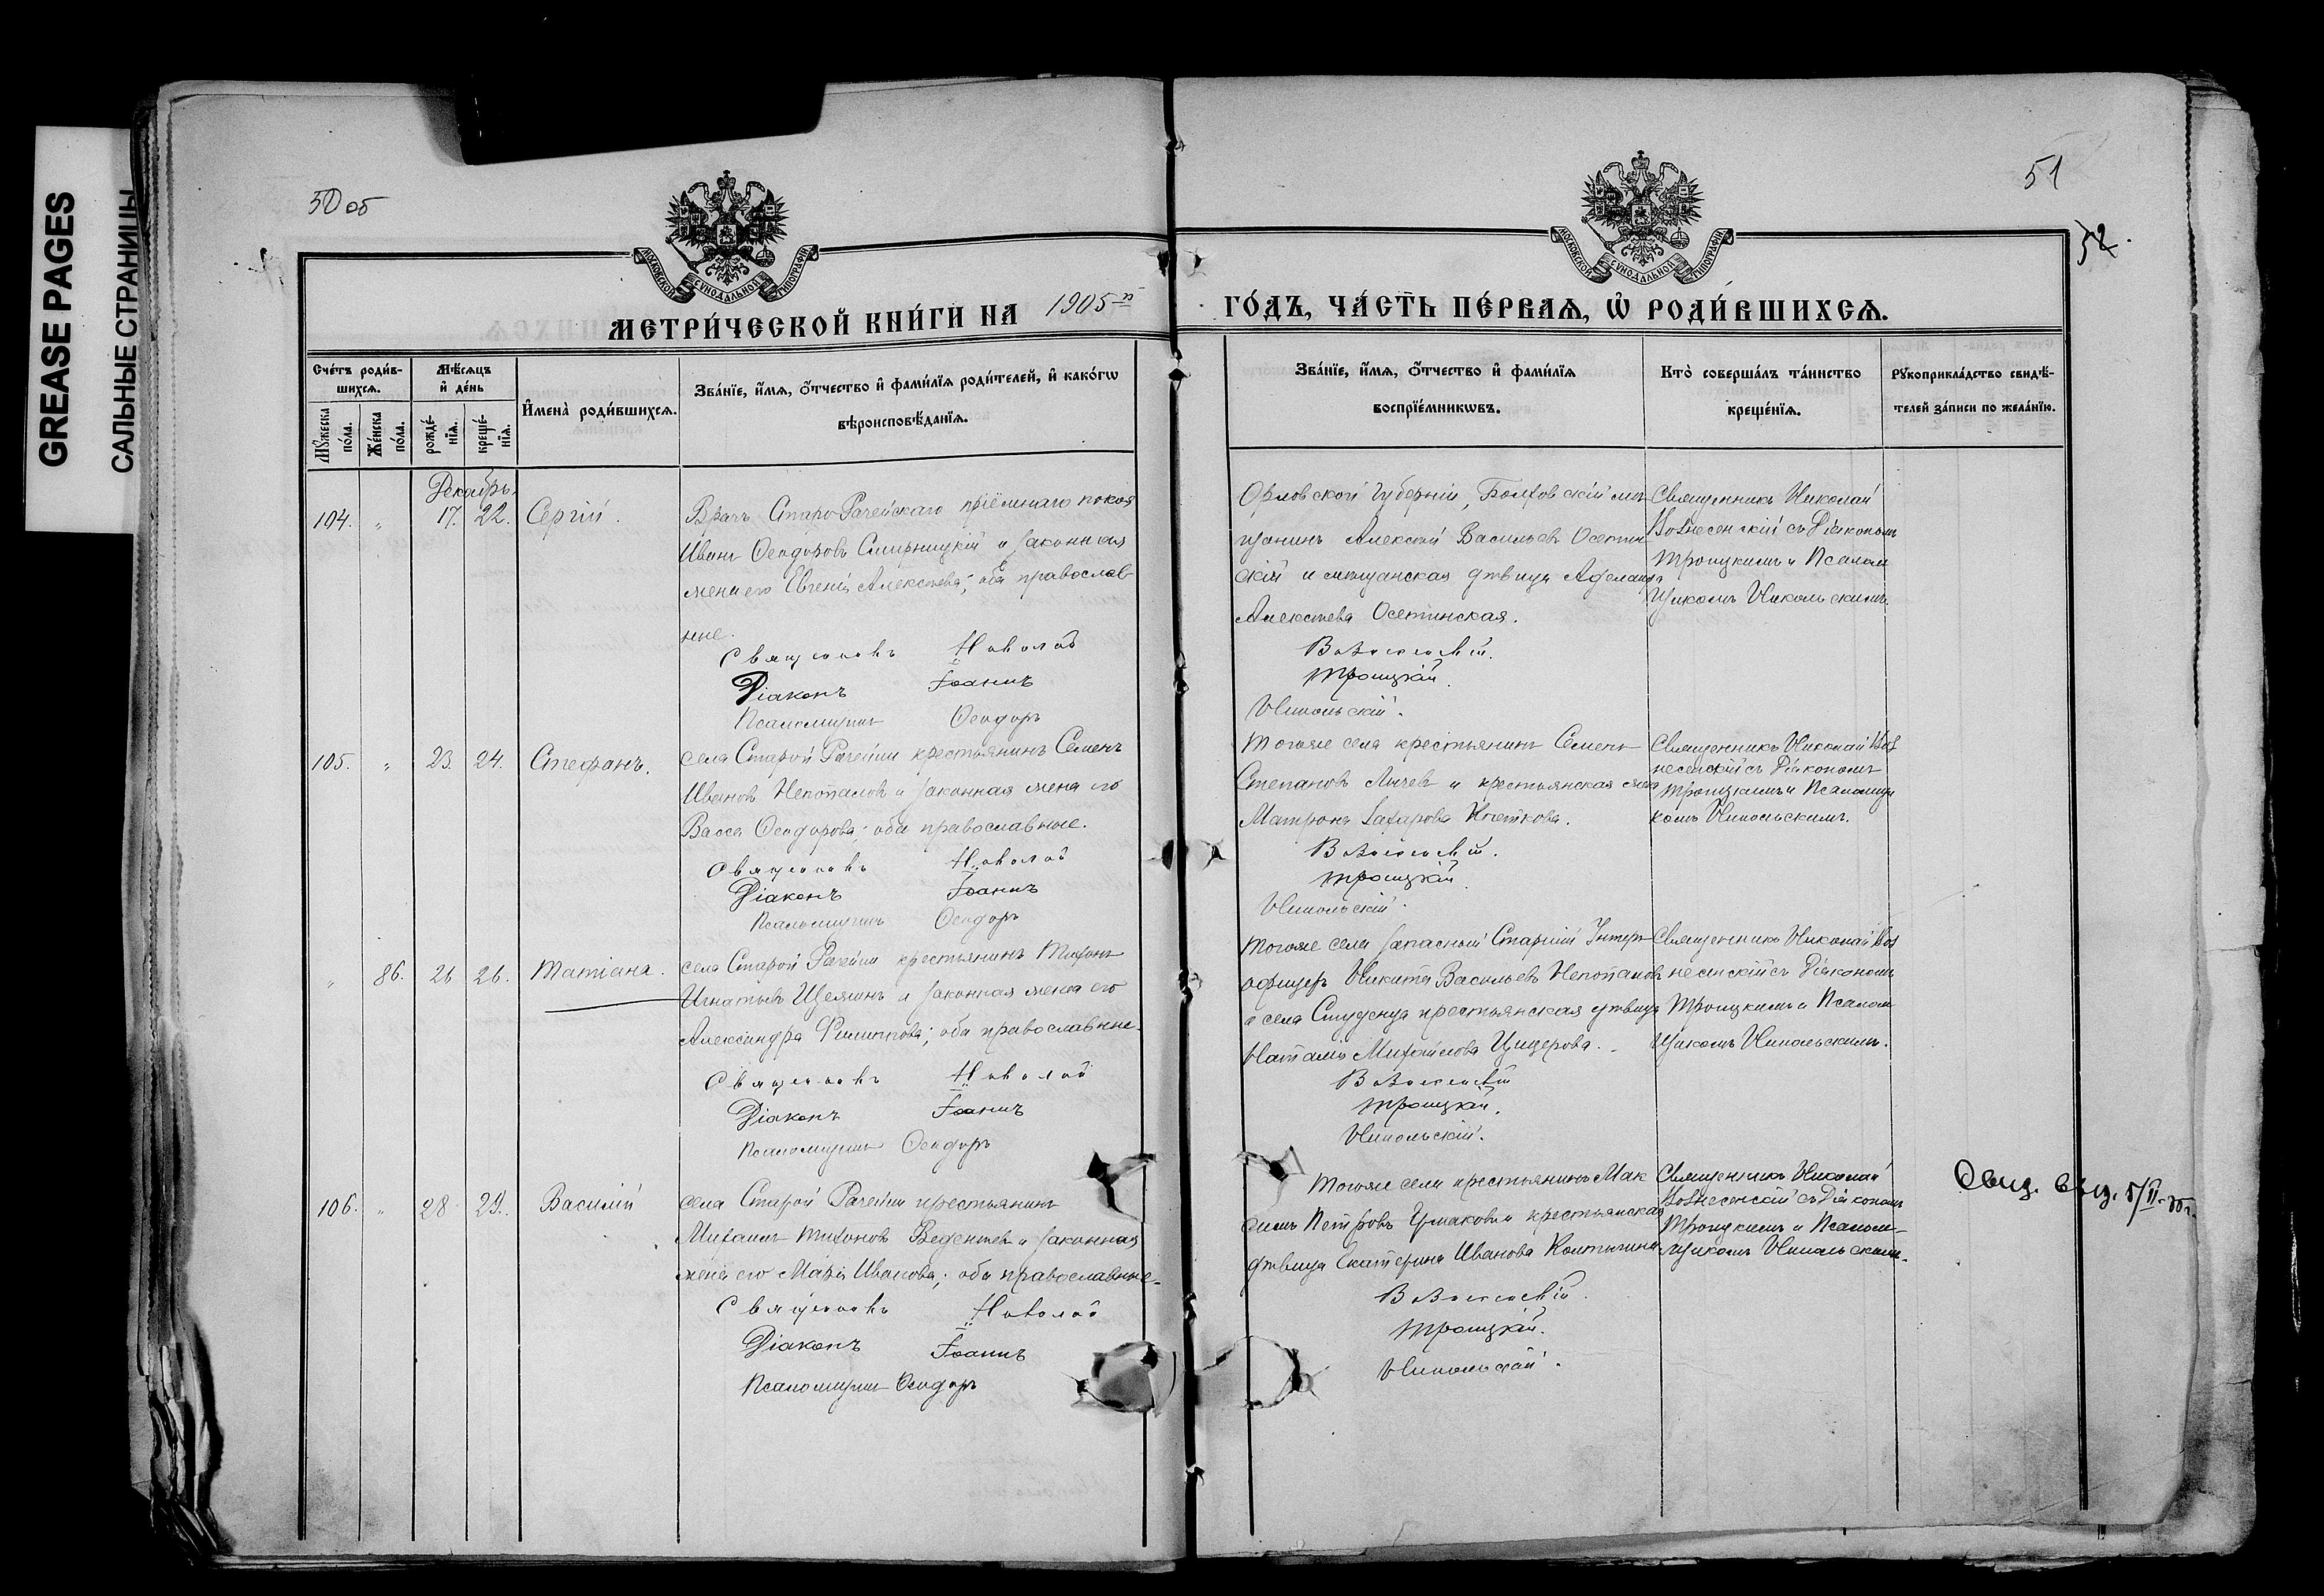 GREASE PAGES
САЛЬНЫЕ СТРАНИЦЫ
50 об
51
52.
МОСКОВСКОЙ СѴНОДАЛЬНОЙ ТИПОГРАФІИ
МОСКОВСКОЙ СѴНОДАЛЬНОЙ ТИПОГРАФІИ
МЕТРИ́ЧЕСКОЙ КНИ́ГИ НА 1905-й
ГО́ДЪ, ЧА́СТЬ ПЕ́РВАѦ, Ѽ РОДИ́ВШИХСѦ.
Сче́тъ роди́в-
шихсѧ.
Мꙋжеска по́ла.
Же́нска по́ла.
Мѣ́сѧцъ и де́нь
рожде́-
нїѧ.
креще́-
нїѧ.
И҆мена̀ роди́вшихсѧ.
Зва́нїе, и҆́мѧ, ѻ҆́тчество и҆ фами́лїѧ роди́телей, и҆ како́гѡ
вѣроисповѣ́данїѧ.
Зва́нїе, и҆́мѧ, ѻ҆́тчество и҆ фами́лїѧ
воспрїе́мникѡвъ.
Кто̀ соверша́лъ та́инство
креще́нїѧ.
Рꙋкоприкла́дство свидѣ́-
телей за́писи по жела́нїю.
Декабрь.
104. " 17. 22. Сергій.
Врачъ Старо-Рачейскаго пріёмнаго покоя
Иванъ Ѳеодоровъ Смирницкій и законная
жена его Евгенія Алексѣева; оба православ-
ные.
Священникъ Николай
Діаконъ Іоаннъ
Псаломщикъ Ѳеодоръ
Орловской губерніи, Болховскій мѣ-
щанинъ Алексѣй Васильевъ Осетин
скій и мѣщанская дѣвица Аделаида
Алексѣева Осетинская.
Вознесенскій.
Троицкій.
Никольскій.
Священникъ Николай
Вознесенскій съ Діакономъ
Троицкимъ и Псалом
щикомъ Никольскимъ.
105. " 23. 24. Стефанъ.
села Старой Рачейки крестьянинъ Семенъ
Ивановъ Непопаловъ и законная жена его
Васса Ѳеодорова; оба православные.
Священникъ Николай
Діаконъ Іоаннъ
Псаломщикъ Ѳеодоръ
Тогоже села крестьянинъ Семенъ
Степановъ Лычевъ и крестьянская жена
Матрона Захарова
Вознесенскій.
Троицкій.
Никольскій.
Священникъ Николай Воз
несенскій съ Діакономъ
Троицкимъ и Псаломщи
комъ Никольскимъ.
" 86. 26 26. Татіана.
села Старой Рачейки крестьянинъ Тихонъ
Игнатьевъ и законная жена его
Александра Филиппова; оба православные.
Священникъ Николай
Діаконъ Іоаннъ
Псаломщикъ Ѳеодоръ
Тогоже села запасный Старшій Унтеръ
офицеръ Никита Васильевъ Непопаловъ
и села Студенца крестьянская дѣвица
Наталія Михайлова
Вознесенскій
Троицкій.
Никольскій.
Священникъ Николай Воз
несенскій съ Діакономъ
Троицкимъ и Псалом
щикомъ Никольскимъ.
106. " 28 29. Василій
села Старой Рачейки крестьянинъ
Михаилъ Тихоновъ Веденѣевъ и законная
жена его Марія Иванова; оба православные.
Священникъ Николай
Діаконъ Іоаннъ
Псаломщикъ Ѳеодоръ
Тогоже села крестьянинъ Мак
симъ Петровъ Ермаковъ и крестьянская
дѣвица Екатерина Иванова
Вознесенскій.
Троицкій.
Никольскій.
Священникъ Николай
Вознесенскій съ Діакономъ
Троицкимъ и Псалом-
щикомъ Никольскимъ.